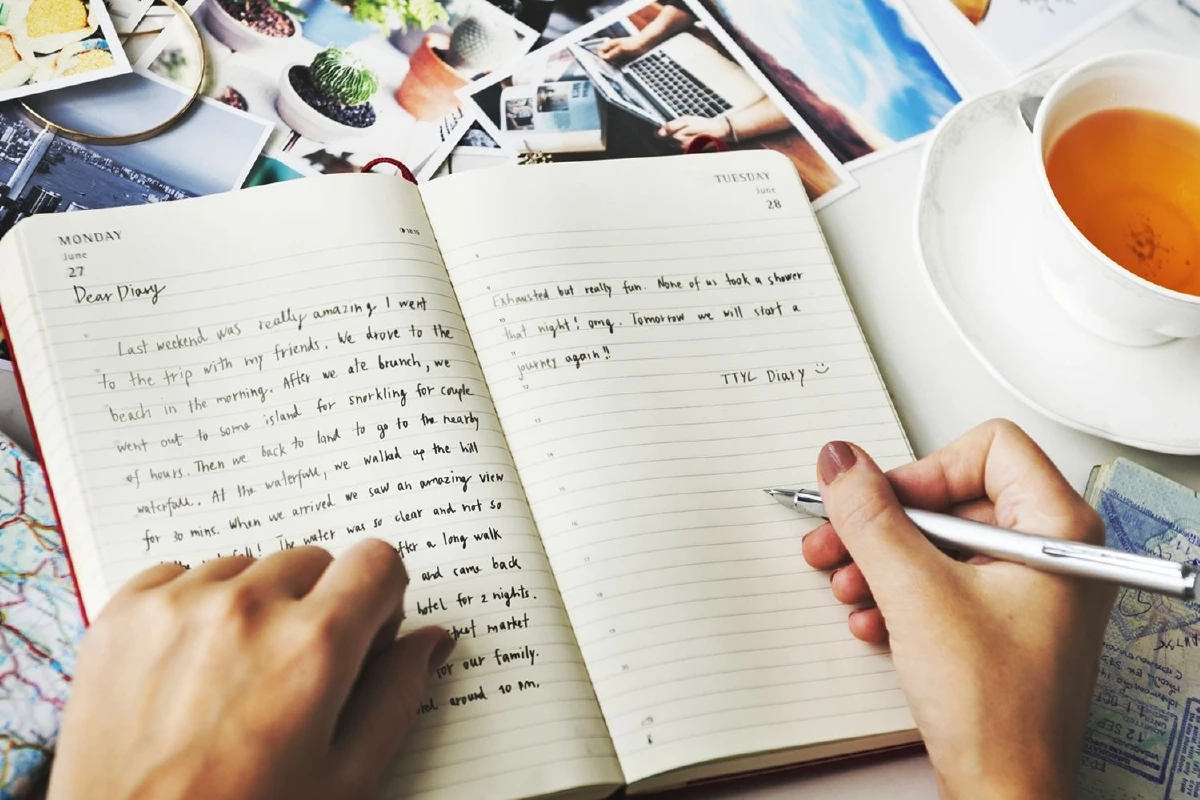 MONDAY
June
27
Dear Diary
Last weekend was really amazing I went
to the trip with my friends. We drove to the
beach in the morning. After we ate brunch, we
went out to some island for snorkling for couple
of hours. Then we back to land to go to the nearby
waterfall. At the waterfall, we walked up the hill
for 30 mins. When we arrived we saw an amazing view
The water was so clear and not so
after a long walk
and came back
hotel for 2 nights.
market
for our family.
around 10 PM.
TUESDAY
June
28
Exhausted but really fun. None of us took a shower
that night! omg. Tomorrow we will start a
journey again!!
TTYL Diary
12 SEP